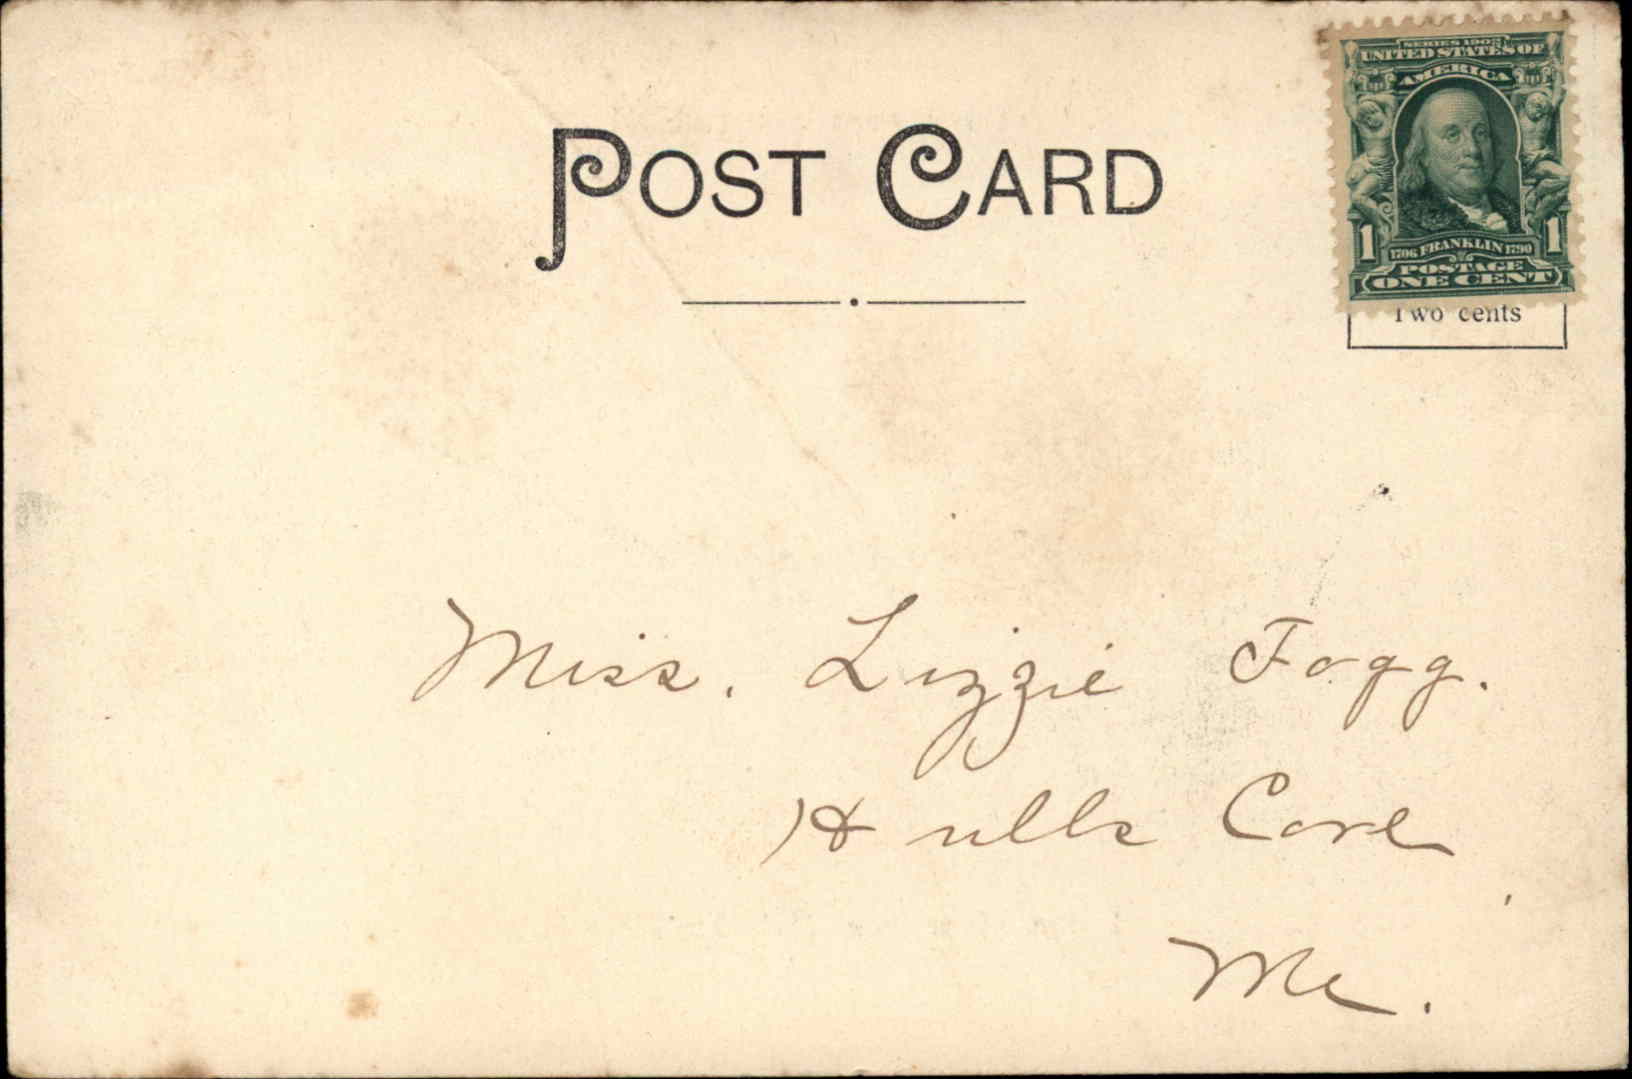 POST CARD
SERIES 1902
UNITED STATES OF
AMERICA
1 1706 FRANKLIN 1790 1
POSTAGE
ONE CENT
Two cents
Miss. Lizzie Fogg.
Hulls Cove,
Me.